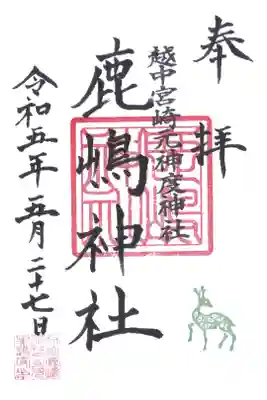 奉拝
越中宮崎元神度神社
鹿嶋神社
令和五年五月二十七日